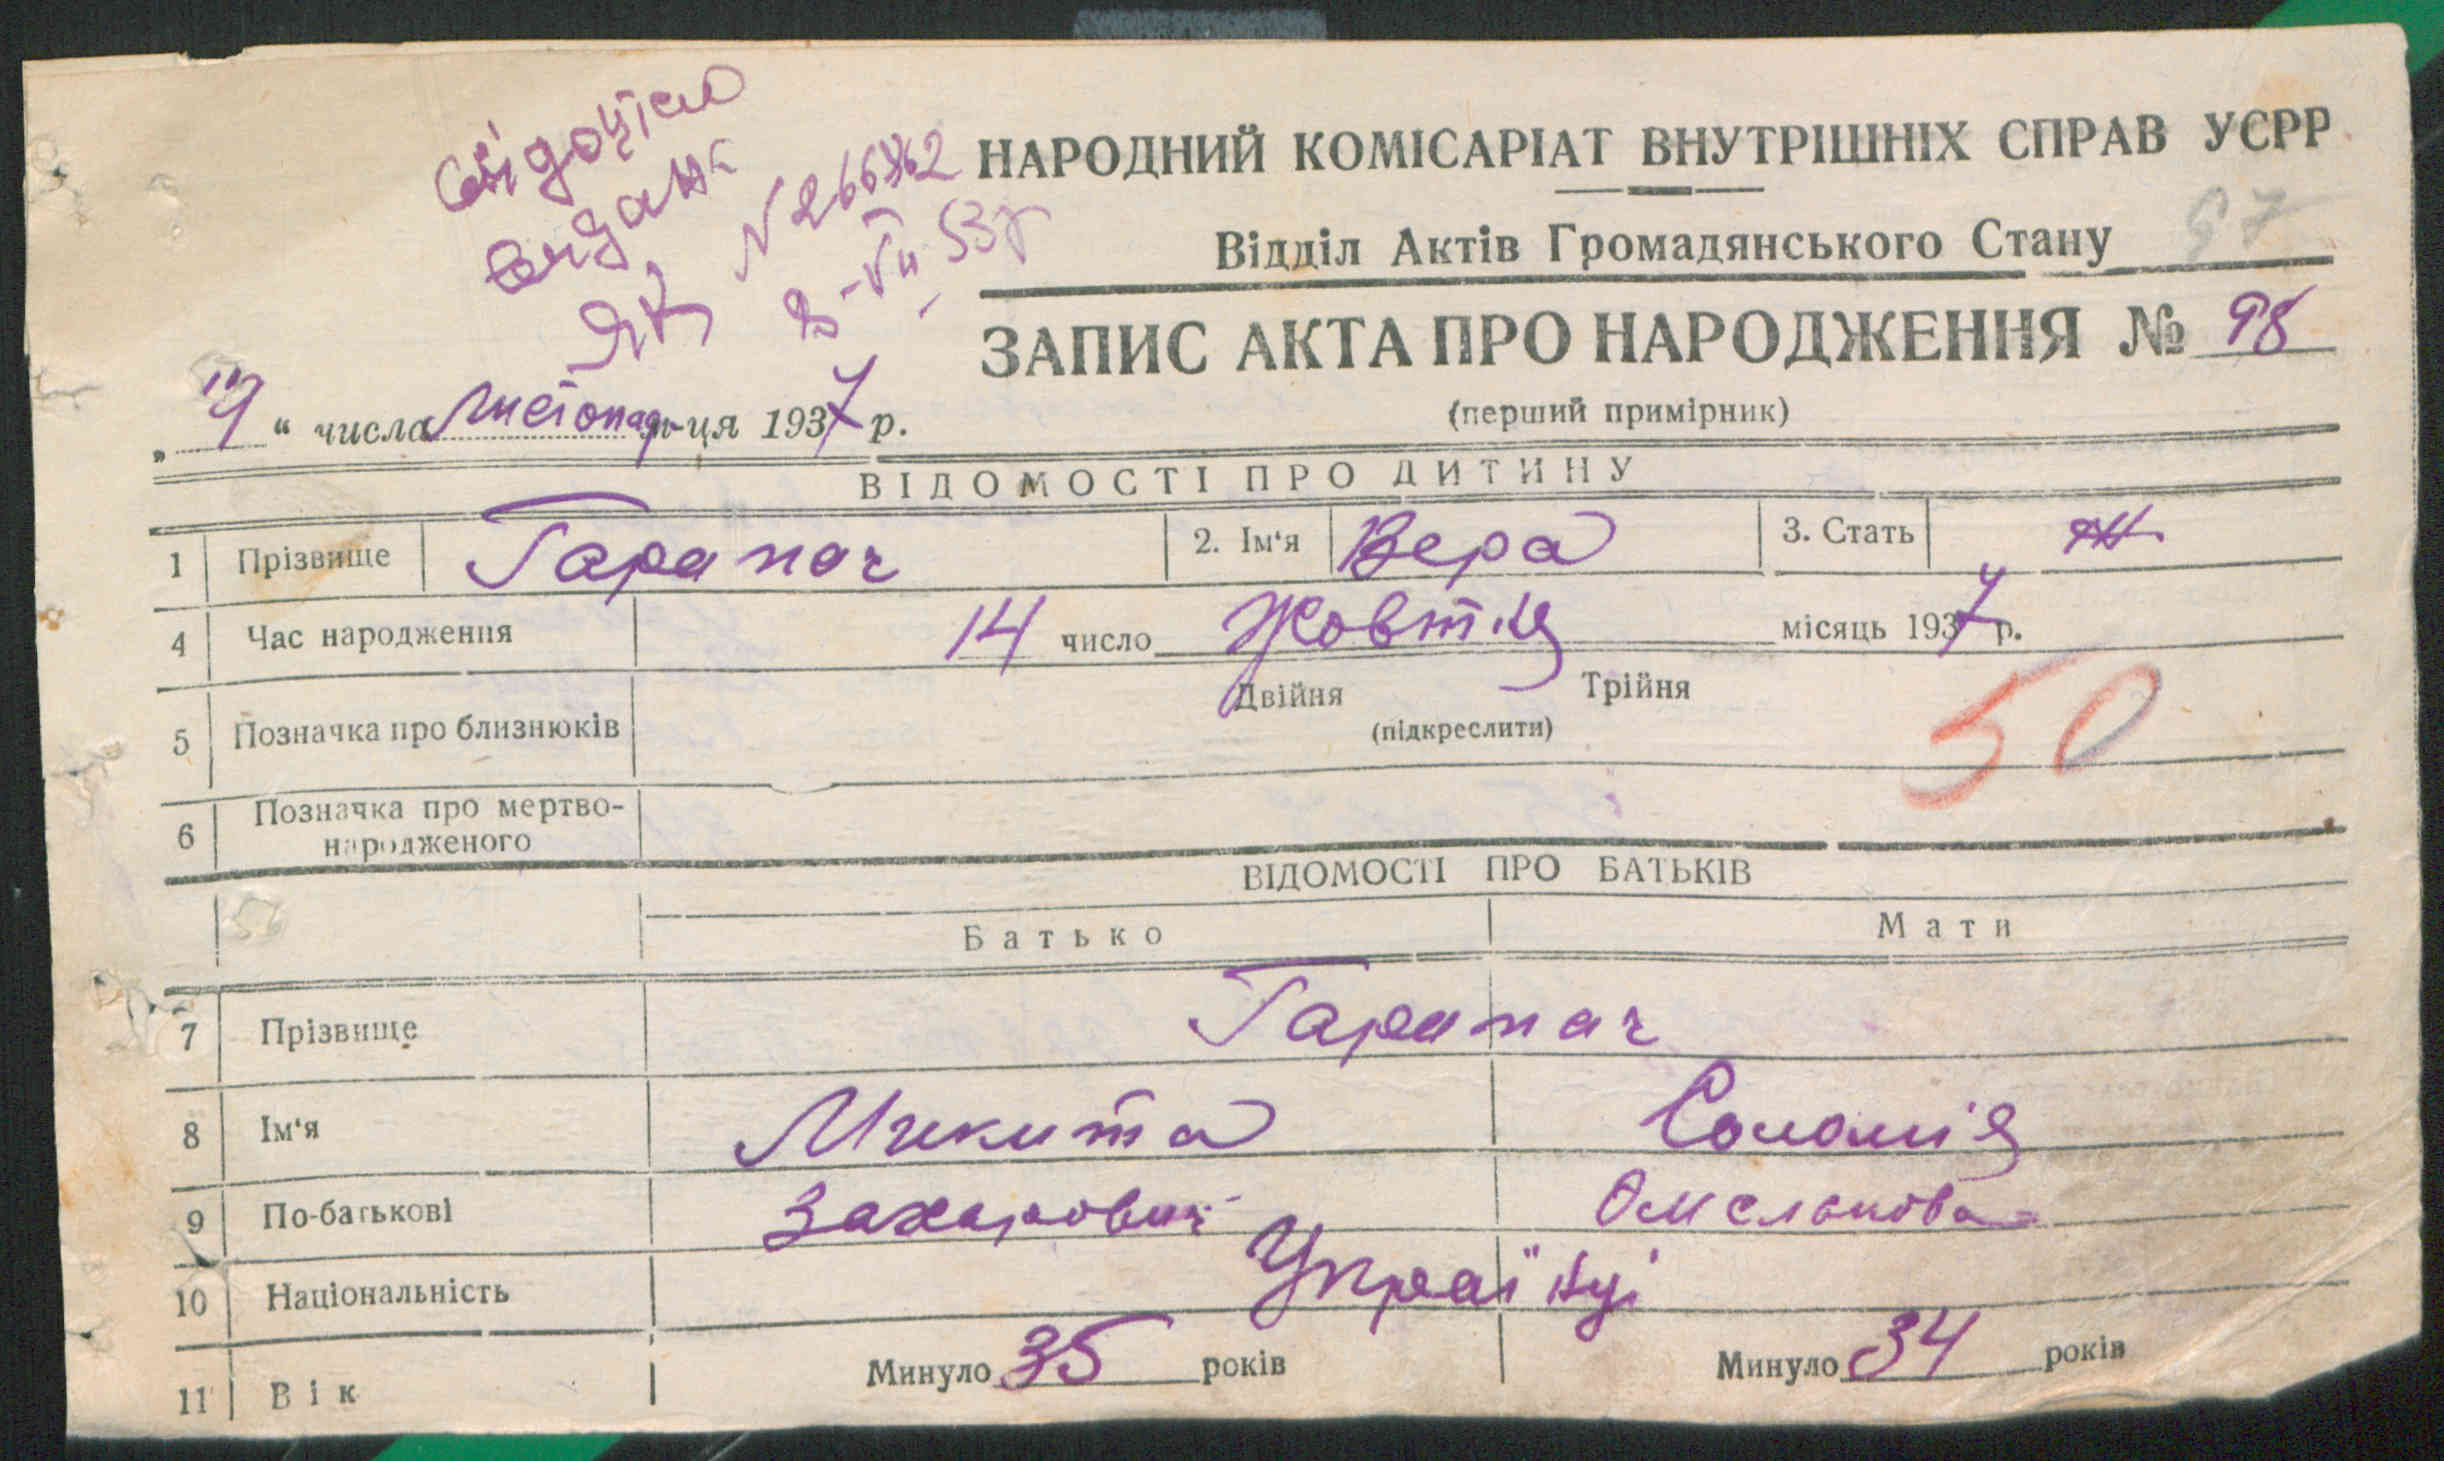 свідоцтво
видано
ЯК № 266862
8-VII 53 р
НАРОДНИЙ КОМІСАРІАТ ВНУТРІШНІХ СПРАВ УСРР
Відділ Актів Громадянського Стану 57
ЗАПИС АКТА ПРО НАРОДЖЕННЯ № 98
(перший примірник)
„ 9 “ числа Листопад м-ця 1937 р.
ВІДОМОСТІ ПРО ДИТИНУ
1 Прізвище Гарапач 2. Ім‘я Вера 3. Стать ж
4 Час народження 14 число Жовтня місяць 1937 р.
5 Позначка про близнюків Двійня Трійня
(підкреслити)
50
6 Позначка про мертво-
народженого
ВІДОМОСТІ ПРО БАТЬКІВ
Батько Мати
7 Прізвище Гарапач
8 Ім‘я Микита Соломія
9 По-батькові Захарович Омельянова
10 Національність Українці
11 Вік Минуло 35 років Минуло 34 років